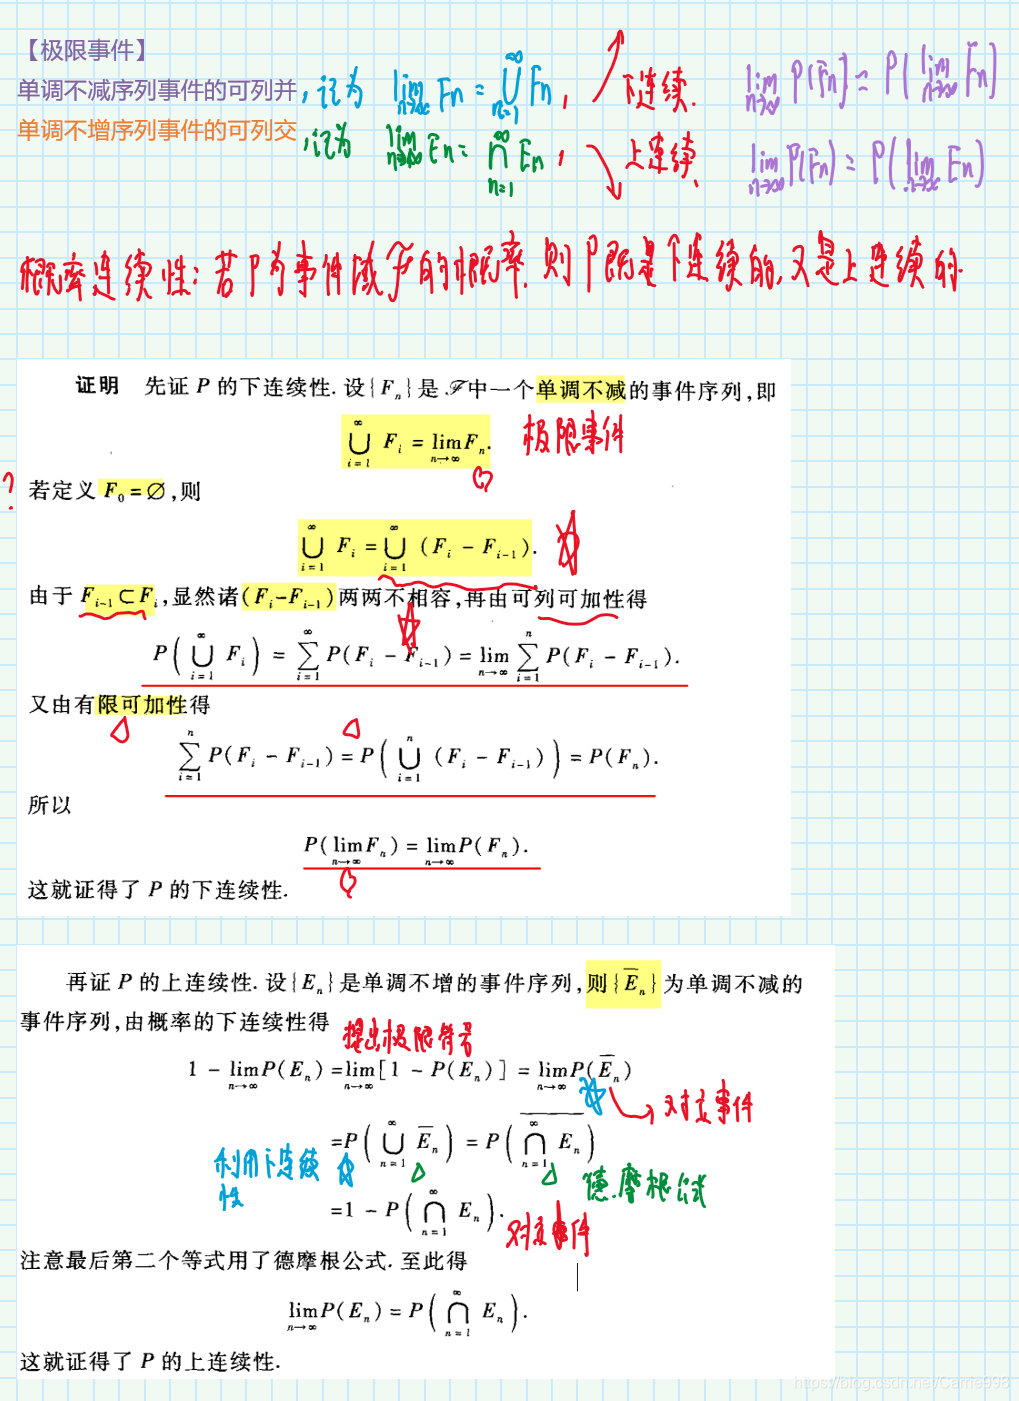 【极限事件】
单调不减序列事件的可列并，记为 lim n→∞ Fn = ∞ ⋃ n=1 Fn， 下连续. lim n→∞ P(Fn) = P(lim n→∞ Fn)
单调不增序列事件的可列交，记为 lim n→∞ En = ∞ ⋂ n=1 En， 上连续. lim n→∞ P(Fn) = P(lim n→∞ En)
概率连续性：若P为事件域ℱ的概率，则P既是下连续的，又是上连续的.
证明 先证 P 的下连续性. 设{Fₙ}是 ℱ 中一个单调不减的事件序列,即
∞ ⋃ i=1 Fᵢ = lim n→∞ Fₙ. 极限事件
? 若定义 F₀ = ∅,则
∞ ⋃ i=1 Fᵢ = ∞ ⋃ i=1 (Fᵢ − Fᵢ₋₁).
由于 Fᵢ₋₁ ⊂ Fᵢ,显然诸(Fᵢ−Fᵢ₋₁)两两不相容,再由可列可加性得
P( ∞ ⋃ i=1 Fᵢ ) = ∞ ∑ i=1 P(Fᵢ − Fᵢ₋₁) = lim n→∞ n ∑ i=1 P(Fᵢ − Fᵢ₋₁).
又由有限可加性得
n ∑ i=1 P(Fᵢ − Fᵢ₋₁) = P( n ⋃ i=1 (Fᵢ − Fᵢ₋₁) ) = P(Fₙ).
所以
P(lim n→∞ Fₙ) = lim n→∞ P(Fₙ).
这就证得了 P 的下连续性.
再证 P 的上连续性. 设{Eₙ}是单调不增的事件序列,则{E̅ₙ}为单调不减的
事件序列,由概率的下连续性得 提出极限符号
1 − lim n→∞ P(Eₙ) = lim n→∞ [1 − P(Eₙ)] = lim n→∞ P(E̅ₙ)
对立事件
=P( ∞ ⋃ n=1 E̅ₙ ) = P( \overline{∞ ⋂ n=1 Eₙ} )
利用下连续性
德.摩根公式
=1 − P( ∞ ⋂ n=1 Eₙ ). 对立事件
注意最后第二个等式用了德摩根公式. 至此得
lim n→∞ P(Eₙ) = P( ∞ ⋂ n=1 Eₙ ).
这就证得了 P 的上连续性.
https://blog.csdn.net/Carrie998